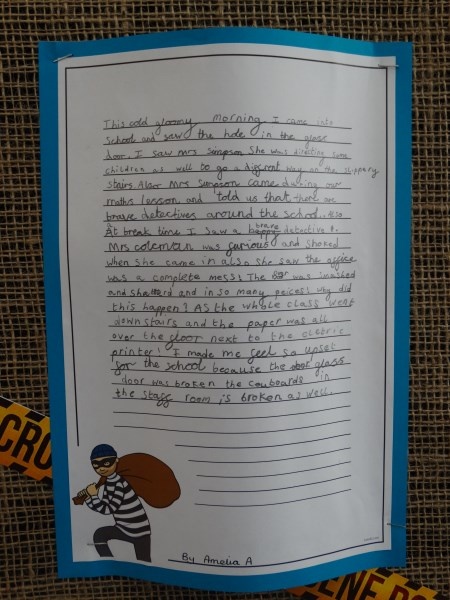 This odd gloomy morning, I came into
school and saw the hole in the glass
door. I saw Mrs Simpson She was directing some
children as well to go a diffrent way on the slippary
stairs. Also Mrs Simpson came during our
maths lesson and told us that, there are
brave detectives around the school. Also
At break time I saw a brave detective .
Mrs coleman was furious and shoked
when she came in also she saw the office
was a complete mess! The was smashed
and shatterd and in so many peices! why did
this happen? As the whole class went
down stairs and the paper was all
over the floor next to the electric
printer! I made me feel so upset
for the school because the glass
door was broken the couboards in
the staff room is broken as well.
By Amelia A
CRO
ENE DO